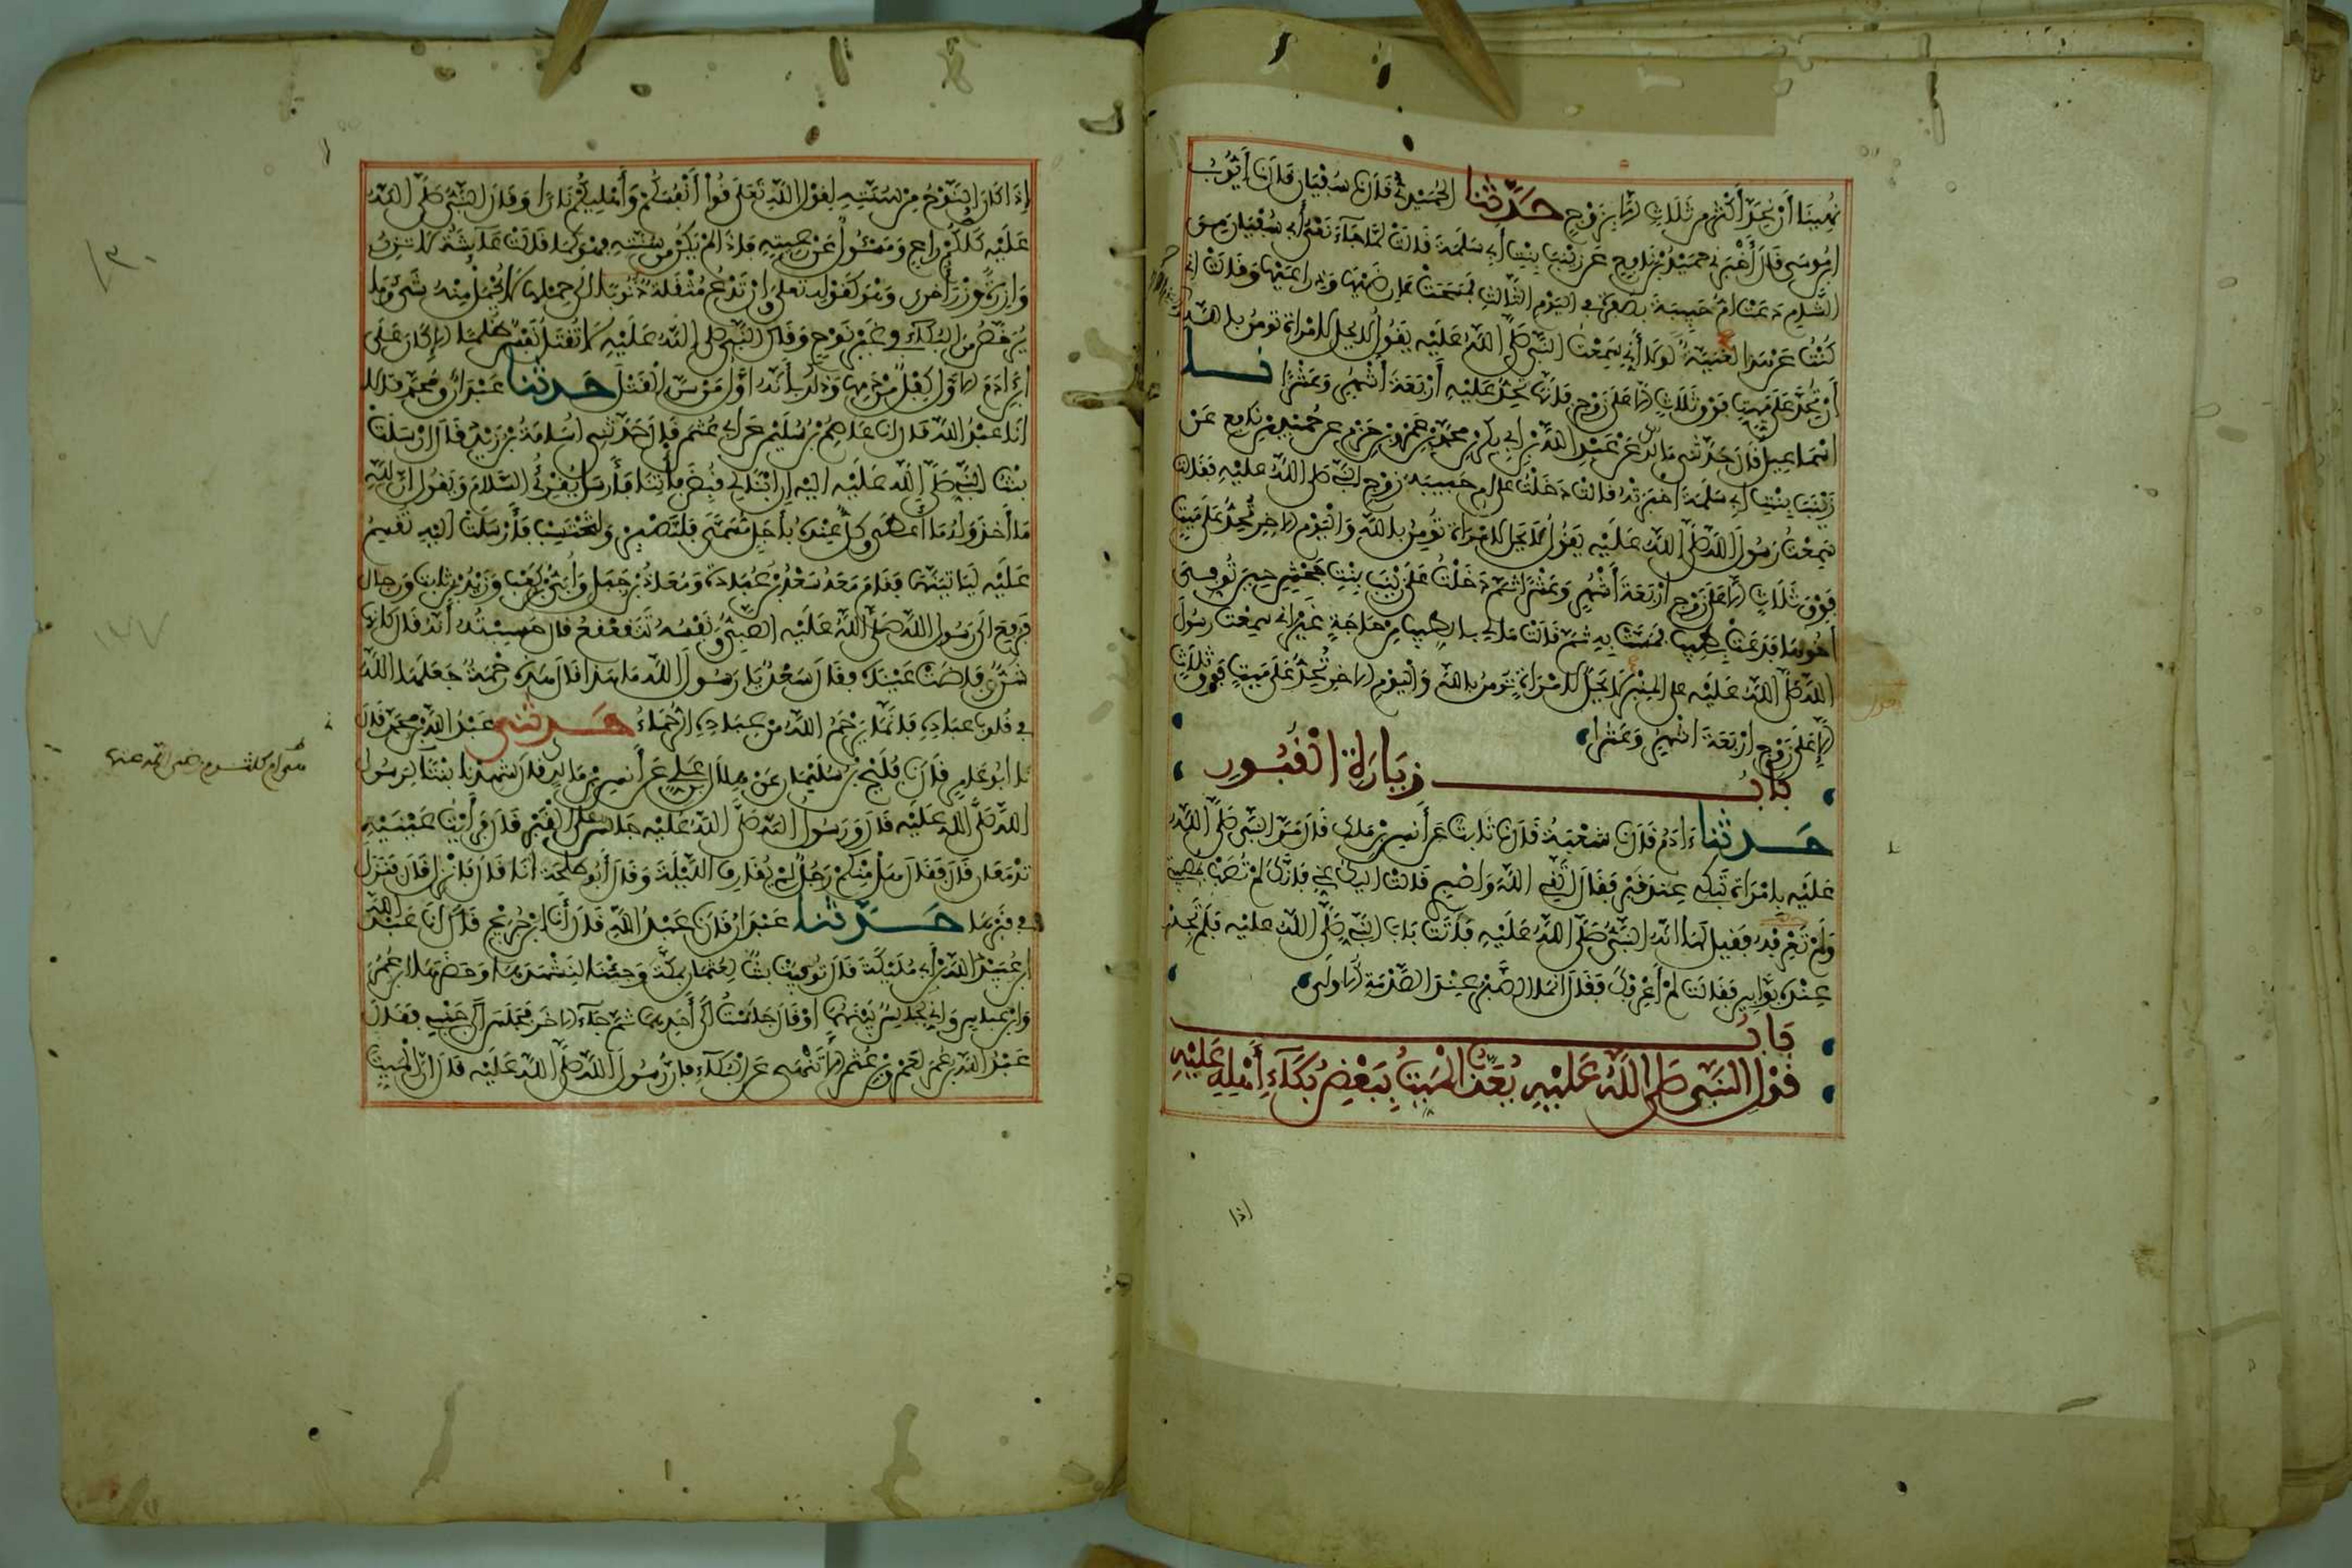 نهينا أن نحد أكثر من ثلاث إلا بزوج حدثنا الحميدي قال نا سفيان قال نا أيوب
ابن موسى قال أخبرني حميد بن نافع عن زينب بنت أبي سلمة قالت لما جاء نعي أبي سفيان من
الشام دعت أم حبيبة بصفرة في اليوم الثالث فمسحت عارضيها وذراعيها وقالت إني
كنت عن هذا لغنية لولا أني سمعت النبي صلى الله عليه يقول لا يحل لامرأة تومن بالله
أن تحد على ميت فوق ثلاث إلا على زوج فإنها تحد عليه أربعة أشهر وعشرا نا
اسماعيل قال حدثني مالك عن عبد الله بن أبي بكر بن محمد بن عمرو بن حزم عن حميد بن نافع عن
زينب بنت أبي سلمة اخبرته قالت دخلت على أم حبيبة زوج النبي صلى الله عليه فقالت
سمعت رسول الله صلى الله عليه يقول لا يحل لامرأة تومن بالله واليوم الاخر تحد على ميت
فوق ثلاث إلا على زوج أربعة أشهر وعشرا ثم دخلت على زينب بنت جحش حين توفي
أخوها فدعت بطيب فمست به ثم قالت مالي بالطيب من حاجة غير أني سمعت رسول
الله صلى الله عليه على المنبر لا يحل لامرأة تومن بالله واليوم الاخر تحد على ميت فوق ثلاث
إلا على زوج أربعة أشهر وعشرا
باب زيارة القبور
حدثنا ءادم قال نا شعبة قال نا ثابت عن أنس بن مالك قال مر النبي صلى الله
عليه بامرأة تبكي عند قبر فقال اتقي الله واصبري قالت إليك عني فإنك لم تصب بمصيبتي
ولم تعرفه فقيل لها انه النبي صلى الله عليه فأتت باب النبي صلى الله عليه فلم تجد
عنده بوابين فقالت لم أعرفك فقال انما الصبر عند الصدمة الاولى
باب
قول النبي صلى الله عليه يعذب الميت ببعض بكاء أهله عليه
إذا
إذا كان النوح من سنته لقول الله تعلى قوا أنفسكم وأهليكم نارا وقال النبي صلى الله
عليه كلكم راع ومسئول عن رعيته فإذا لم يكن من سنته فهو كما قالت عائشة لا تزر
وازرة وزر أخرى وهو كقوله تعلى وإن تدع مثقلة ذنوبا إلى حملها لا يحمل منه شيء وما
يرخص من البكاء في غير نوح وقال النبي صلى الله عليه لا تقتل نفس ظلما إلا كان على
ابن ءادم الاول كفل من دمها وذلك بأنه أول من سن القتل حدثنا عبدان ومحمد قالا
انا عبد الله قال انا عاصم بن سليم عن أبي عثمن قال حدثني أسامة بن زيد قال ارسلت
بنت النبي صلى الله عليه اليه ان ابنا لي قبض فأتنا فأرسل يقرئ السلام ويقول إن لله
ما أخذ وله ما أعطى وكل عنده بأجل مسمى فلتصبر ولتحتسب فأرسلت اليه تقسم
عليه لياتينها فقام معه سعد بن عبادة ومعاذ بن جبل وأبي بن كعب وزيد بن ثابت ورجال
فرفع الى رسول الله صلى الله عليه الصبي ونفسه تتقعقع قال حسبته أنه قال كأنها
شن ففاضت عيناه فقال سعد يا رسول الله ما هذا قال هذه رحمة جعلها الله
في قلوب عباده فإنما يرحم الله من عباده الرحماء حدثني عبد الله بن محمد قال
نا ابو عامر قال نا فليح بن سليمان عن هلال بن علي عن أنس بن مالك قال شهدنا بنتا لرسول
الله صلى الله عليه قال ورسول الله صلى الله عليه جالس على القبر قال فرأيت عينيه
تدمعان قال فقال هل منكم رجل لم يقارف الليلة فقال أبو طلحة أنا قال فانزل قال فنزل
في قبرها حدثنا عبدان قال نا عبد الله قال أنا ابن جريج قال أنا عبد الله
ابن عبيد الله بن أبي مليكة قال توفيت بنت لعثمان بمكة وجئنا لنشهدها وحضرها ابن عمر
وابن عباس وإني لجالس بينهما أو قال جلست إلى أحدهما ثم جاء الاخر فجلس إلى جنبي فقال
عبد الله بن عمر لعمرو بن عثمن ألا تنهى عن البكاء فإن رسول الله صلى الله عليه قال ان الميت
هي أم كلثوم رضي الله عنها